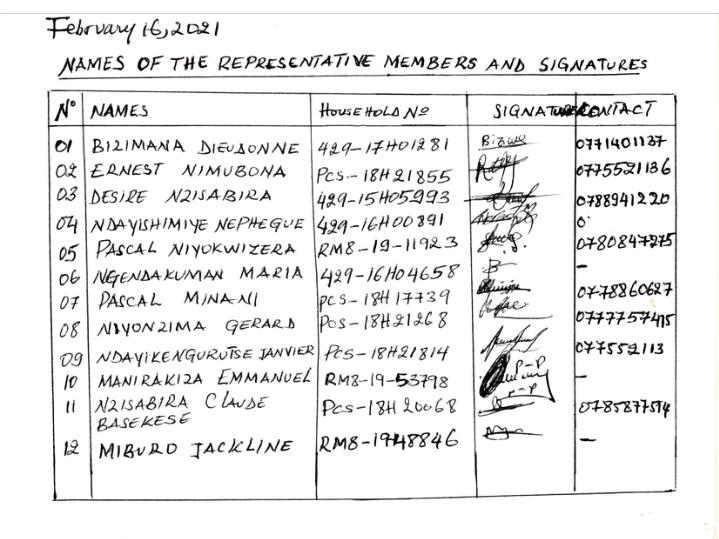 February 16, 2021
NAMES OF THE REPRESENTATIVE MEMBERS AND SIGNATURES
No NAMES HOUSEHOLD No SIGNATURES CONTACT
01 BIZIMANA DIEUDONNE 429-17H01281 0771401137
02 ERNEST NIMUBONA PCS-18H21855 0775521136
03 DESIRE NZISABIRA 429-15H05993 0788941220
04 NDAYISHIMIYE NEPHEGUE 429-16H00891 0
05 PASCAL NIYOKWIZERA RM8-19-11923 0780847275
06 NGENDAKUMAN MARIA 429-16H04658 B -
07 PASCAL MINANI PCS-18H17739 0778860627
08 NIYONZIMA GERARD PCS-18H21268 0777757415
09 NDAYIKENGURUTSE JANVIER PCS-18H21814 077552113
10 MANIRAKIZA EMMANUEL RM8-19-53798 P-P -
11 NZISABIRA CLAUDE PCS-18H20068 P-P 0785877514
BASEKESE
12 MIBURO JACKLINE RM8-19H48846 -